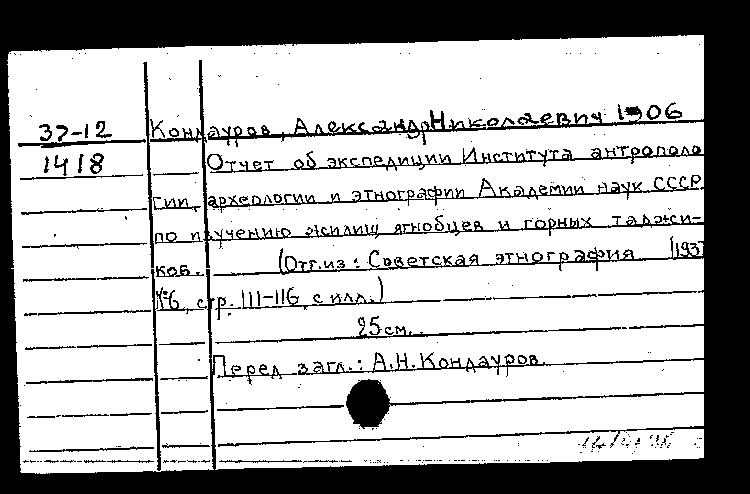 37-12 Кондауров, Александр Николаевич 1906
1418 Отчет об экспедиции Института антрополо
гии, археологии и этнографии Академии наук СССР
по изучению жилищ ягнобцев и горных таджи-
ков. (Отт.из: Советская этнография 193
№6, стр. 111-116, с илл.)
25см.
Перед загл.: А.Н.Кондауров.